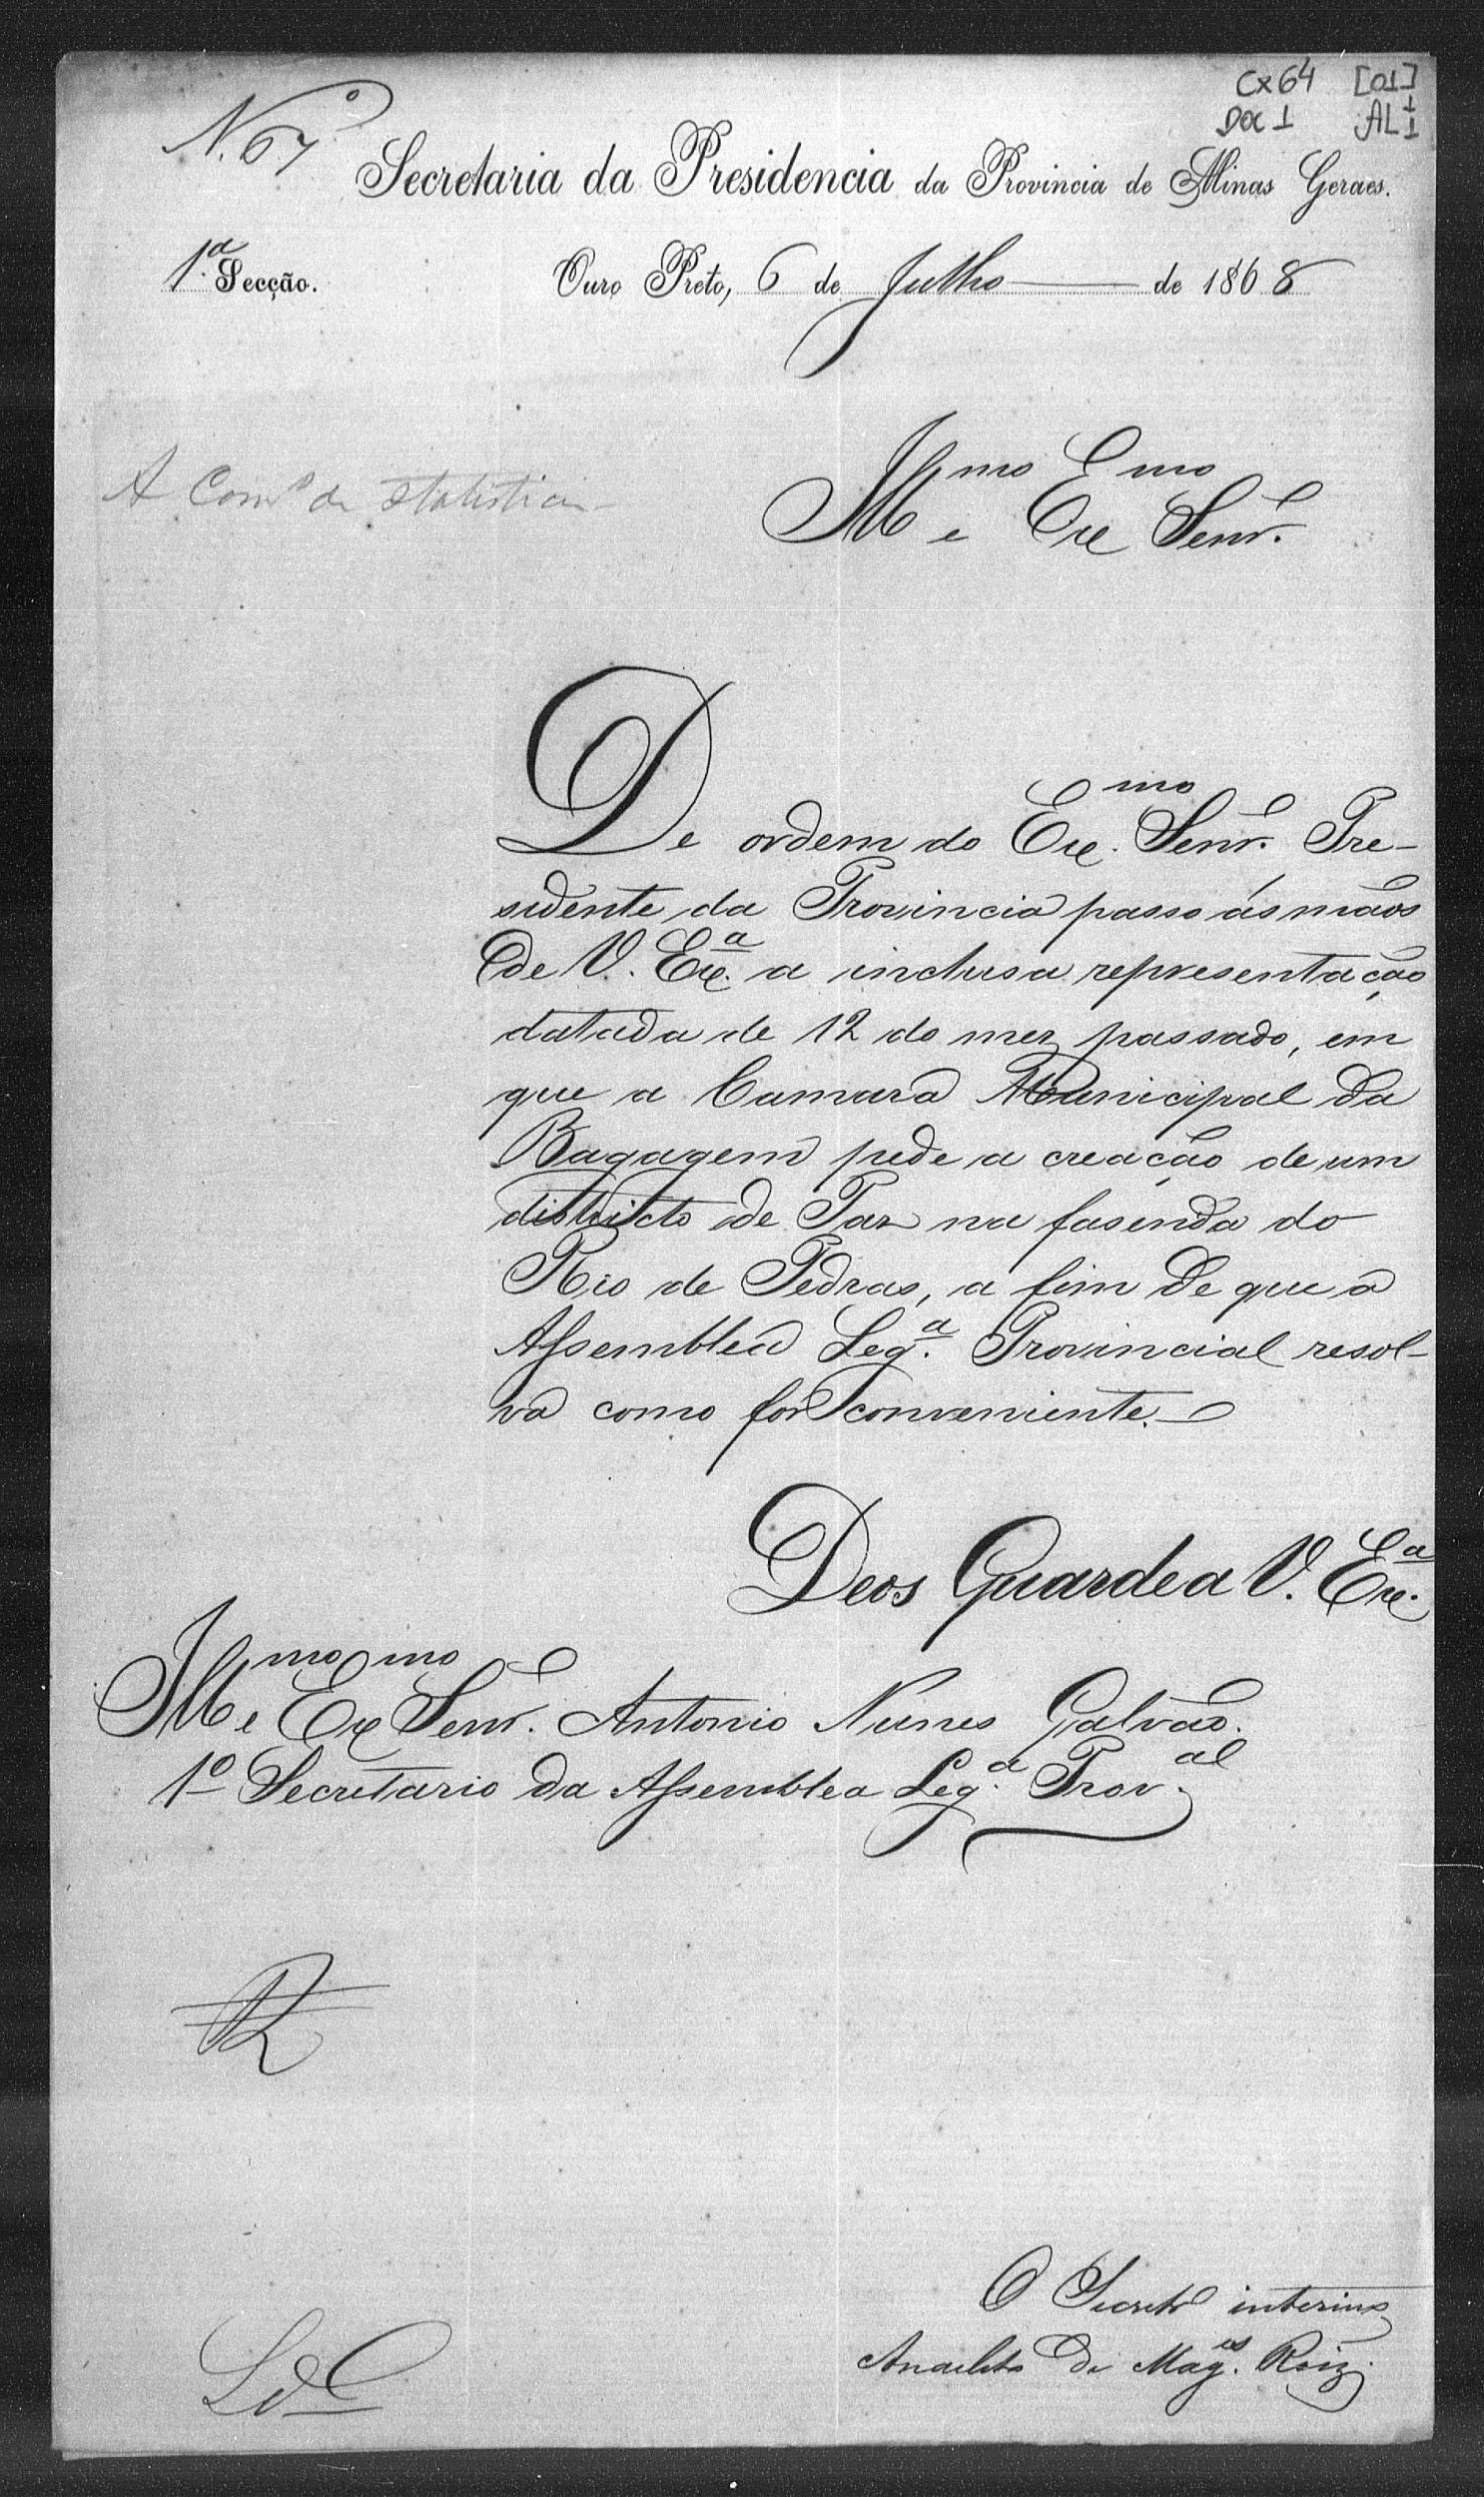 Cx 64 [01]
Doc 1 AL 1 1
N.º 67
Secretaria da Presidencia da Provincia de Minas Geraes.
1.ª Secção. Ouro Preto, 6 de Julho de 1868
A Comº de statistica
Illmo e Exmo Senr.
De ordem do Exmo. Senr. Pre-
sidente da Provincia passo ás mãos
de V. Exª. a inclusa representação
datada de 12 do mez passado, em
que a Camara Municipal da
Bagagem pede a creação de um
districto de Paz na fasenda do
Rio de Pedras, a fim de que a
Assemblea Leg.ª Provincial resol-
va como for conveniente.
Deos Guarde a V. Exª.
Illmo e Exmo Senr. Antonio Nunes Galvão.
1º Secretario da Assemblea Leg.ª Prov.al
O Secretº interino
Anacleto de Mag.es Roiz.